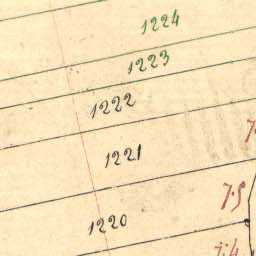 1224
1223
1222
1221
1220
7.5
7.4